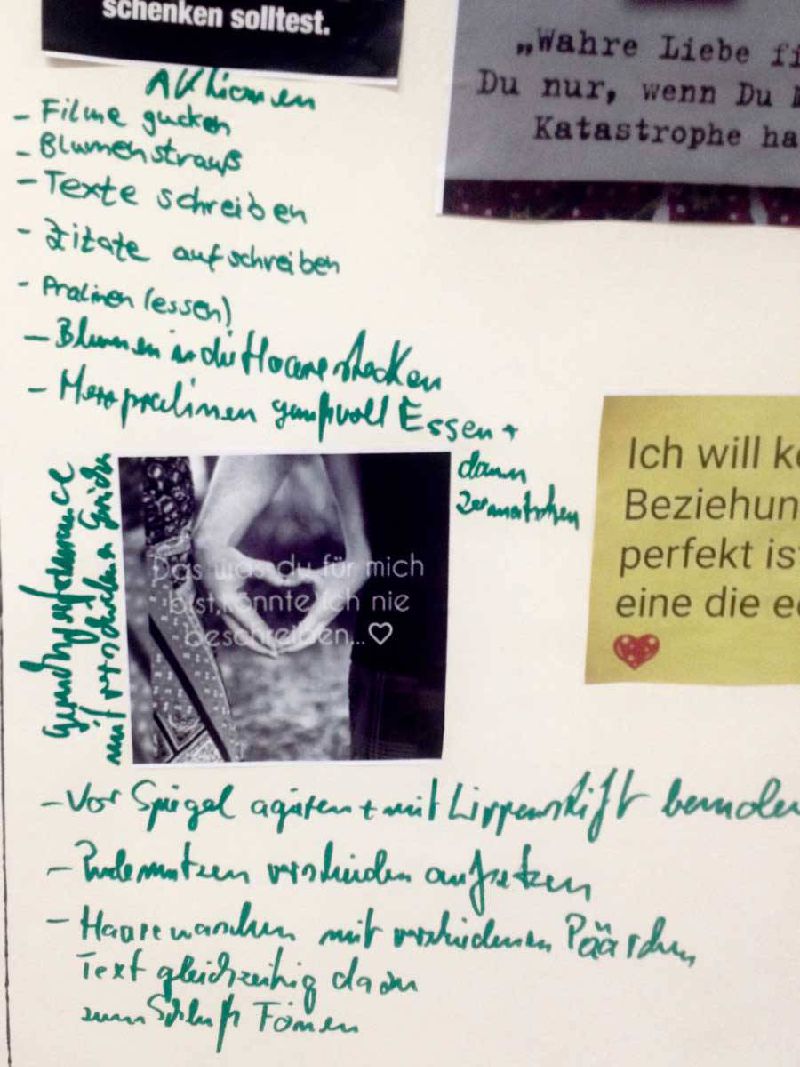 schenken solltest.
„Wahre Liebe fi
Du nur, wenn Du
Katastrophe ha
Aktionen
- Filme gucken
- Blumenstrauß
- Texte schreiben
- Zitate aufschreiben
- Pralinen (essen)
- Blumen in die Haare stecken
- Herzpralinen genußvoll Essen +
dann
zermatschen
mit verschiedenen
Das was du für mich
bist, könnte ich nie
beschreiben...♡
Ich will ke
Beziehun
perfekt is
eine die e
- Vor Spiegel agieren + mit Lippenstift bemalen
- verschieden aufsetzen
- Haare waschen mit verschiedenen Päärchen
Text gleichzeitig dazu
zum Schluß Fönen